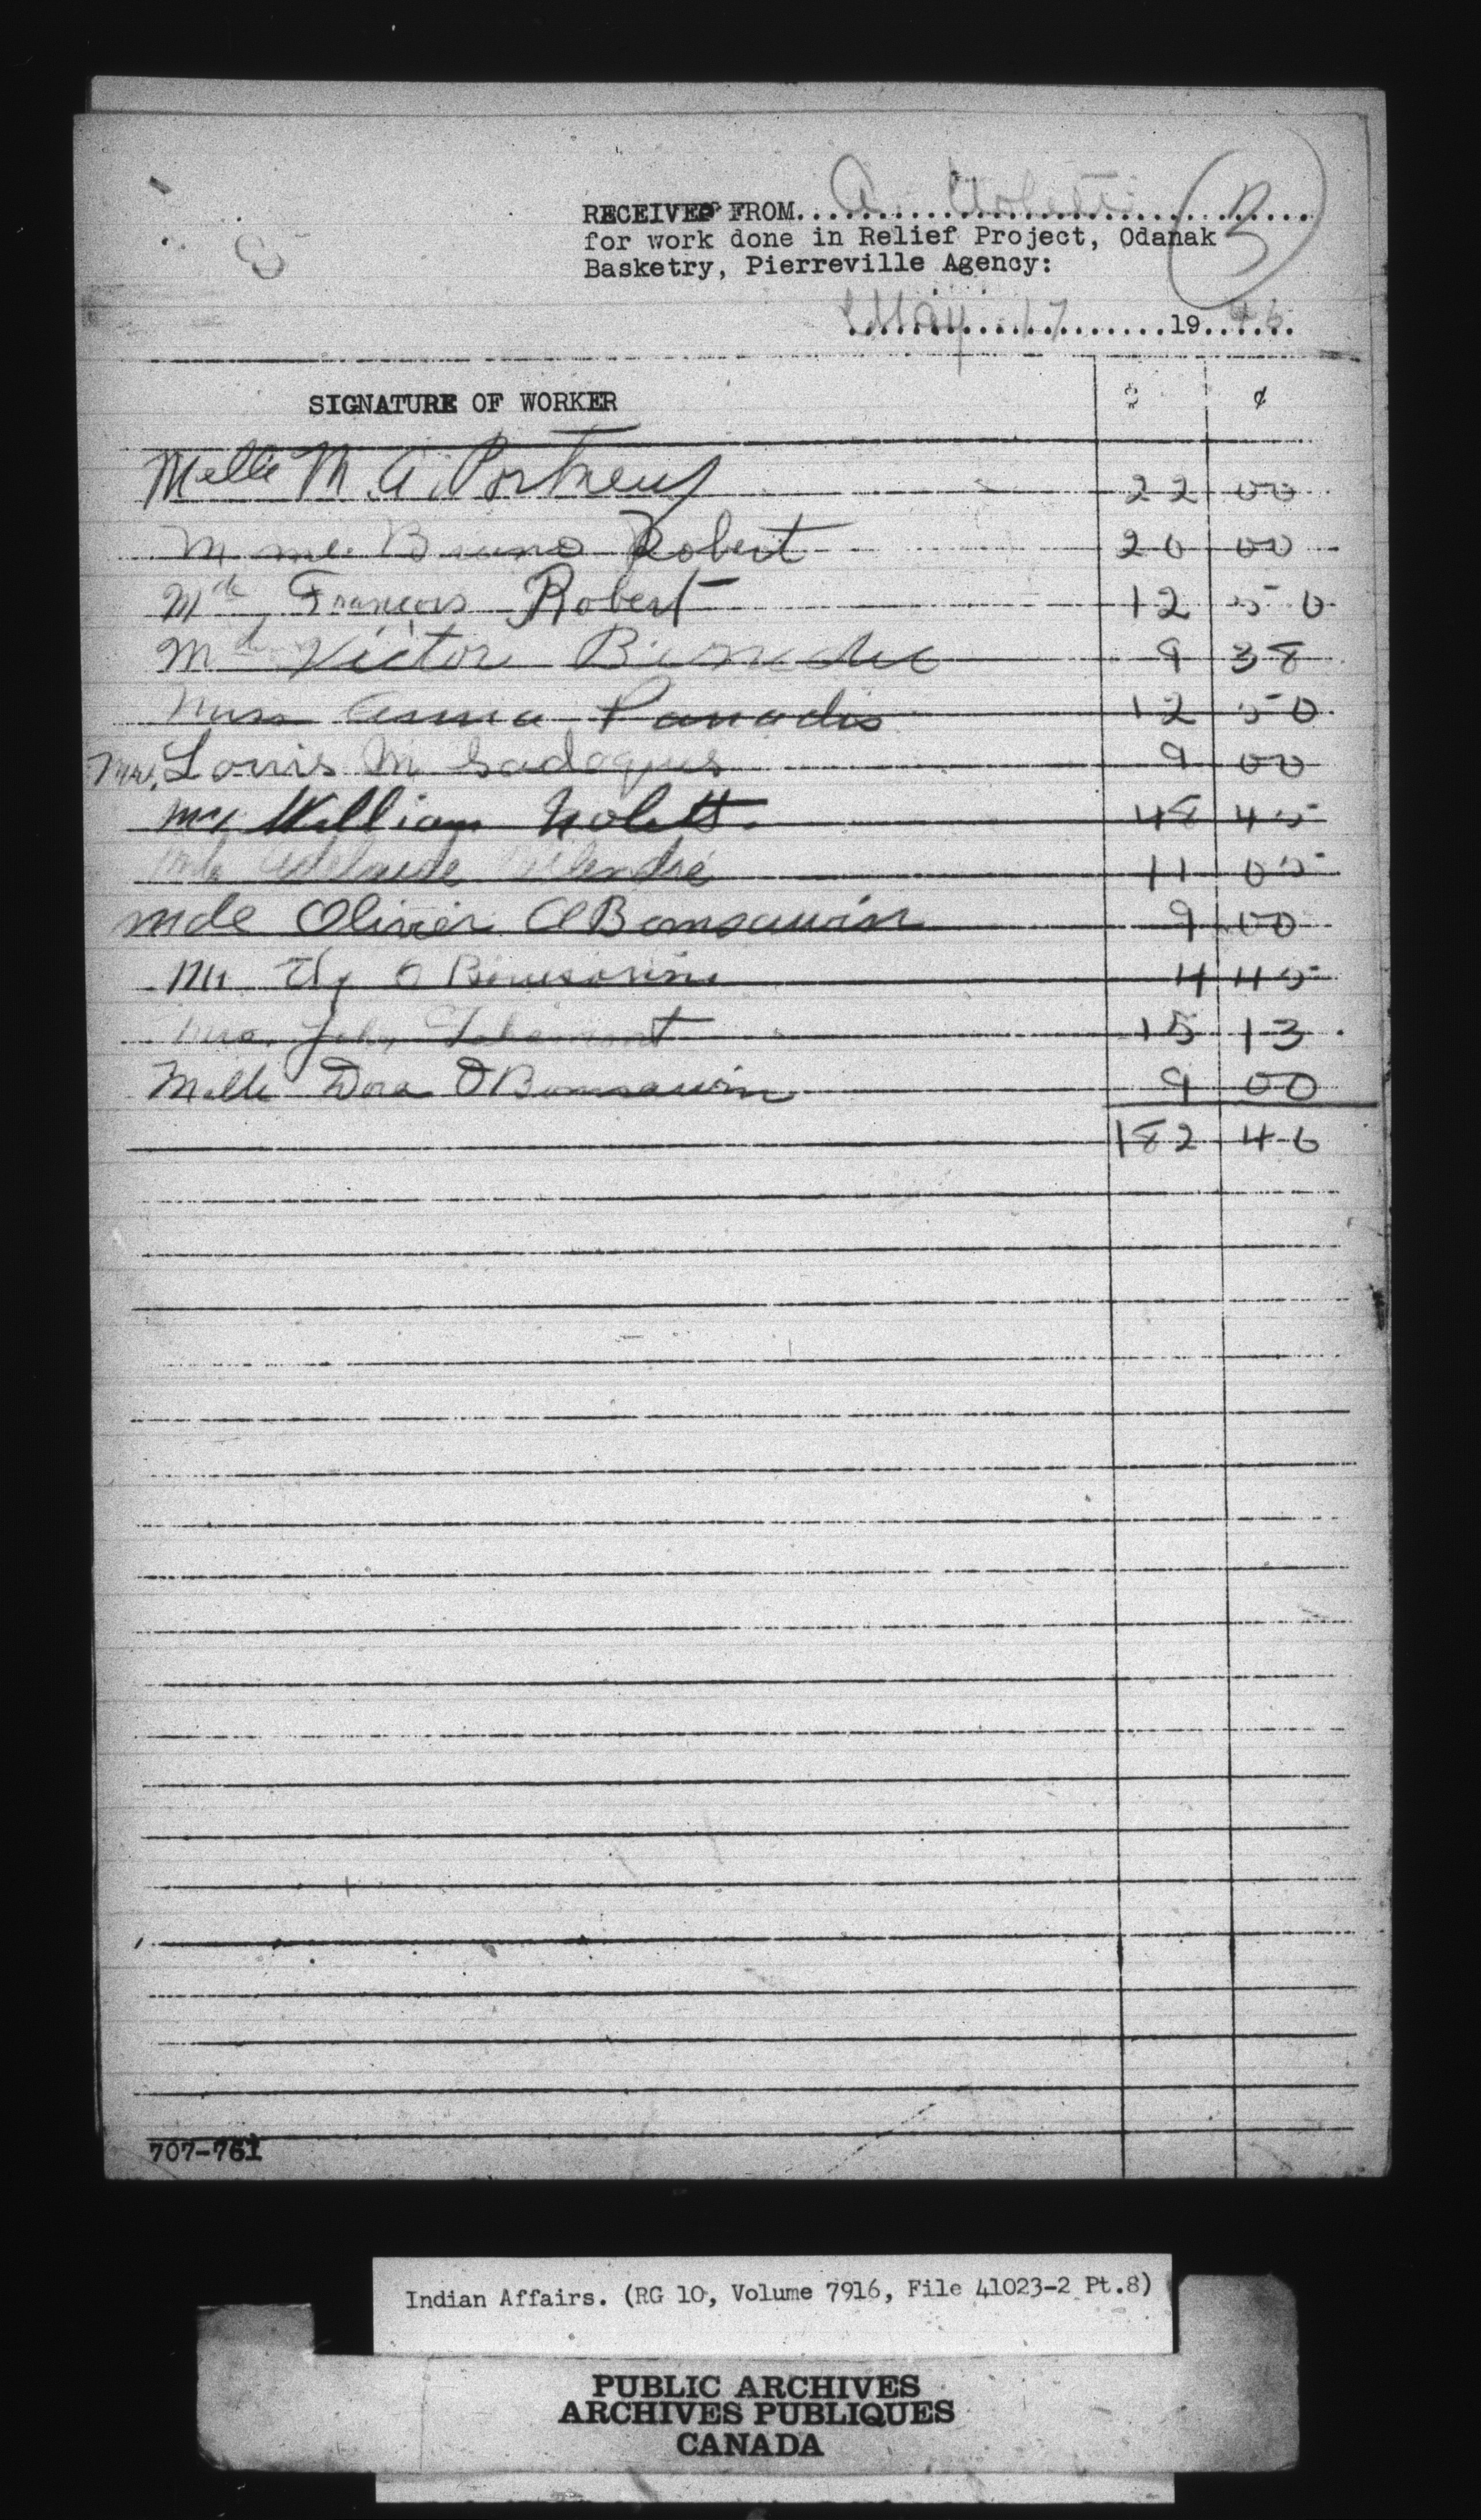 RECEIVED FROM A. Nolett
for work done in Relief Project, Odanak
Basketry, Pierreville Agency:
May 17 19
SIGNATURE OF WORKER $ ¢
Melle M. A. Portneuf 22 00
Mme. Bruno Robert 20 00
Mde François Robert 12 50
Md Victor 9 38
Miss Panadis 12 50
Mrs. Louis M Sadoques 9 00
Mr William Nolett. 48 45
Adelaide 11 05
Mde Olivier OBomsawin 9 00
4 45
Mrs. John 15 13
Melle Dora OBomsawin 9 00
182 46
707-761
Indian Affairs. (RG 10, Volume 7916, File 41023-2 Pt.8)
PUBLIC ARCHIVES
ARCHIVES PUBLIQUES
CANADA